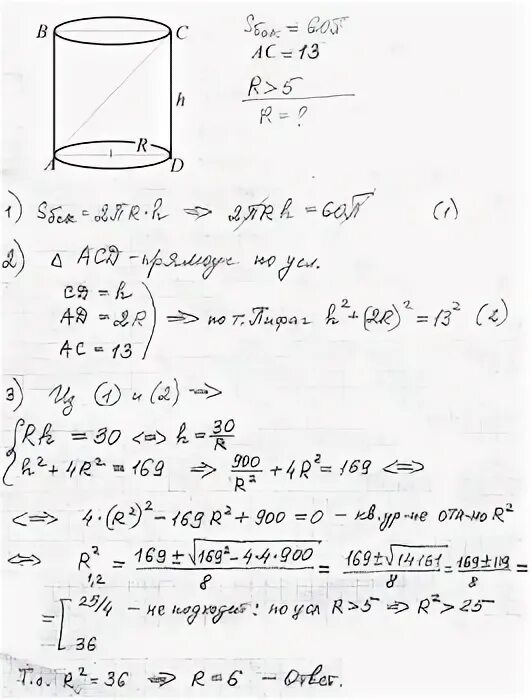 B C Sбок = 60π
AC = 13
h R > 5
R = ?
R
A D
1) Sбок = 2πR·h ⇒ 2πRh = 60π (1)
2) △ ACD - прямоуг по усл.
CD = h
AD = 2R ⇒ по т. Пифаг h² + (2R)² = 13² (2)
AC = 13
3) Из (1) и (2) ⇒
Rh = 30 ⇔ h = 30/R
h² + 4R² = 169 ⇒ 900/R² + 4R² = 169 ⇔
⇔ 4·(R²)² - 169R² + 900 = 0 - кв. ур-ие отн-но R²
⇔ R²₁,₂ = (169 ± √(169² - 4·4·900))/8 = (169 ± √14161)/8 = (169 ± 119)/8 =
= [ 25/4 - не подходит: по усл R > 5 ⇒ R² > 25
36
Т.о. R² = 36 ⇒ R = 6 - Ответ.